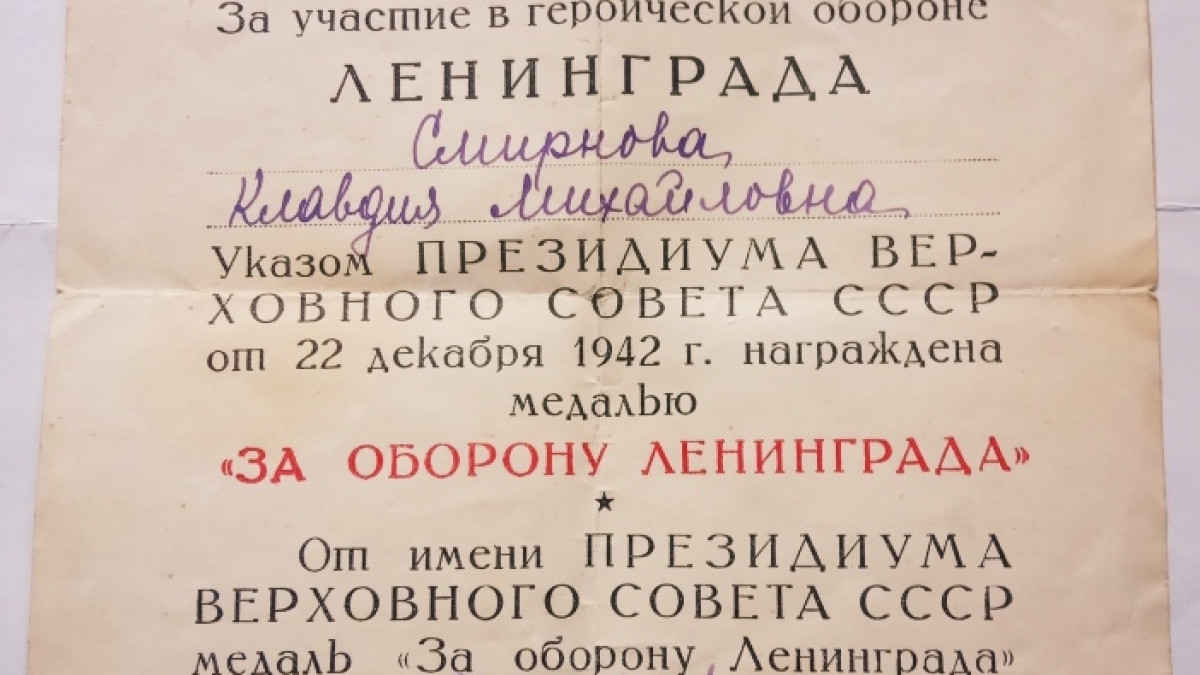 За участие в героической обороне
ЛЕНИНГРАДА
Смирнова
Клавдия Михайловна
Указом ПРЕЗИДИУМА ВЕР-
ХОВНОГО СОВЕТА СССР
от 22 декабря 1942 г. награждена
медалью
«ЗА ОБОРОНУ ЛЕНИНГРАДА»
От имени ПРЕЗИДИУМА
ВЕРХОВНОГО СОВЕТА СССР
медаль «За оборону Ленинграда»